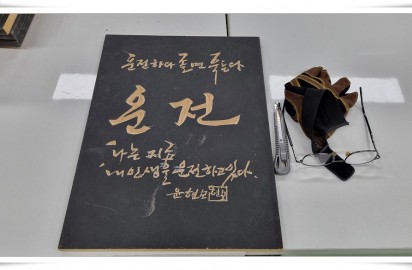 운전하다 졸면 죽는다
운전
나는 지금
내 인생을 운전하고있다.